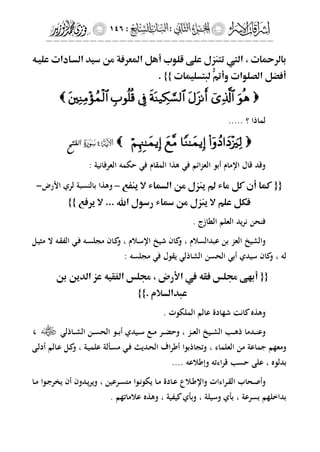 إشراقات الإسراء الجزء الثاني : الباب السابع : ١٤٦ فوزى محمد أبو زيد
بالرحمات ، التي تتنزل على قلوب أهل المعرفة من سيد السادات عليه
أفضل الصلوات وأتمُّ التسليمات }} .
﴿ هُوَ ٱلَّذِىٓ أَنزَلَ ٱلسَّكِينَةَ فِى قُلُوبِ ٱلْمُؤْمِنِينَ ﴾
لماذا ؟ .....
﴿ لِيَزْدَادُوٓا۟ إِيمَـٰنًا مَّعَ إِيمَـٰنِهِمْ ﴾ الآية ٤ سورة الفتح
وقد قال الإمام أبو العزائم في هذا المقام في حكمه العرفانية :
{{ كما أن كل ماء لم ينزل من السماء لا ينفع – وهذا بالنسبة لري الأرض –
فكل علم لا ينزل من سماء رسول الله ... لا يرفع }}
فنحن نريد العلم الطازج .
والشيخ العز بن عبدالسلام ، وكان شيخ الإسلام ، وكان مجلسه في الفقه لا مثيل
له ، وكان سيدي أبي الحسن الشاذلي يقول في مجلسه :
{{ أبهى مجلس فقه في الأرض ، مجلس الفقيه عز الدين بن
عبدالسلام }}.
وهذه كانت شهادة عالم الملكوت .
وعندما ذهب الشيخ العز ، وحضر مع سيدي أبو الحسن الشاذلي ،
ومعهم جماعة من العلماء ، وتجاذبوا أطراف الحديث في مسألة علمية ، وكل عالم أدلى
بدلوه ، على حسب قراءته وإطلاعه ....
وأصحاب القراءات والإطلاع عادة ما يكونوا متسرعين ، ويريدون أن يخرجوا ما
بداخلهم بسرعة ، بأي وسيلة ، وبأي كيفية ، وهذه علاماتهم .